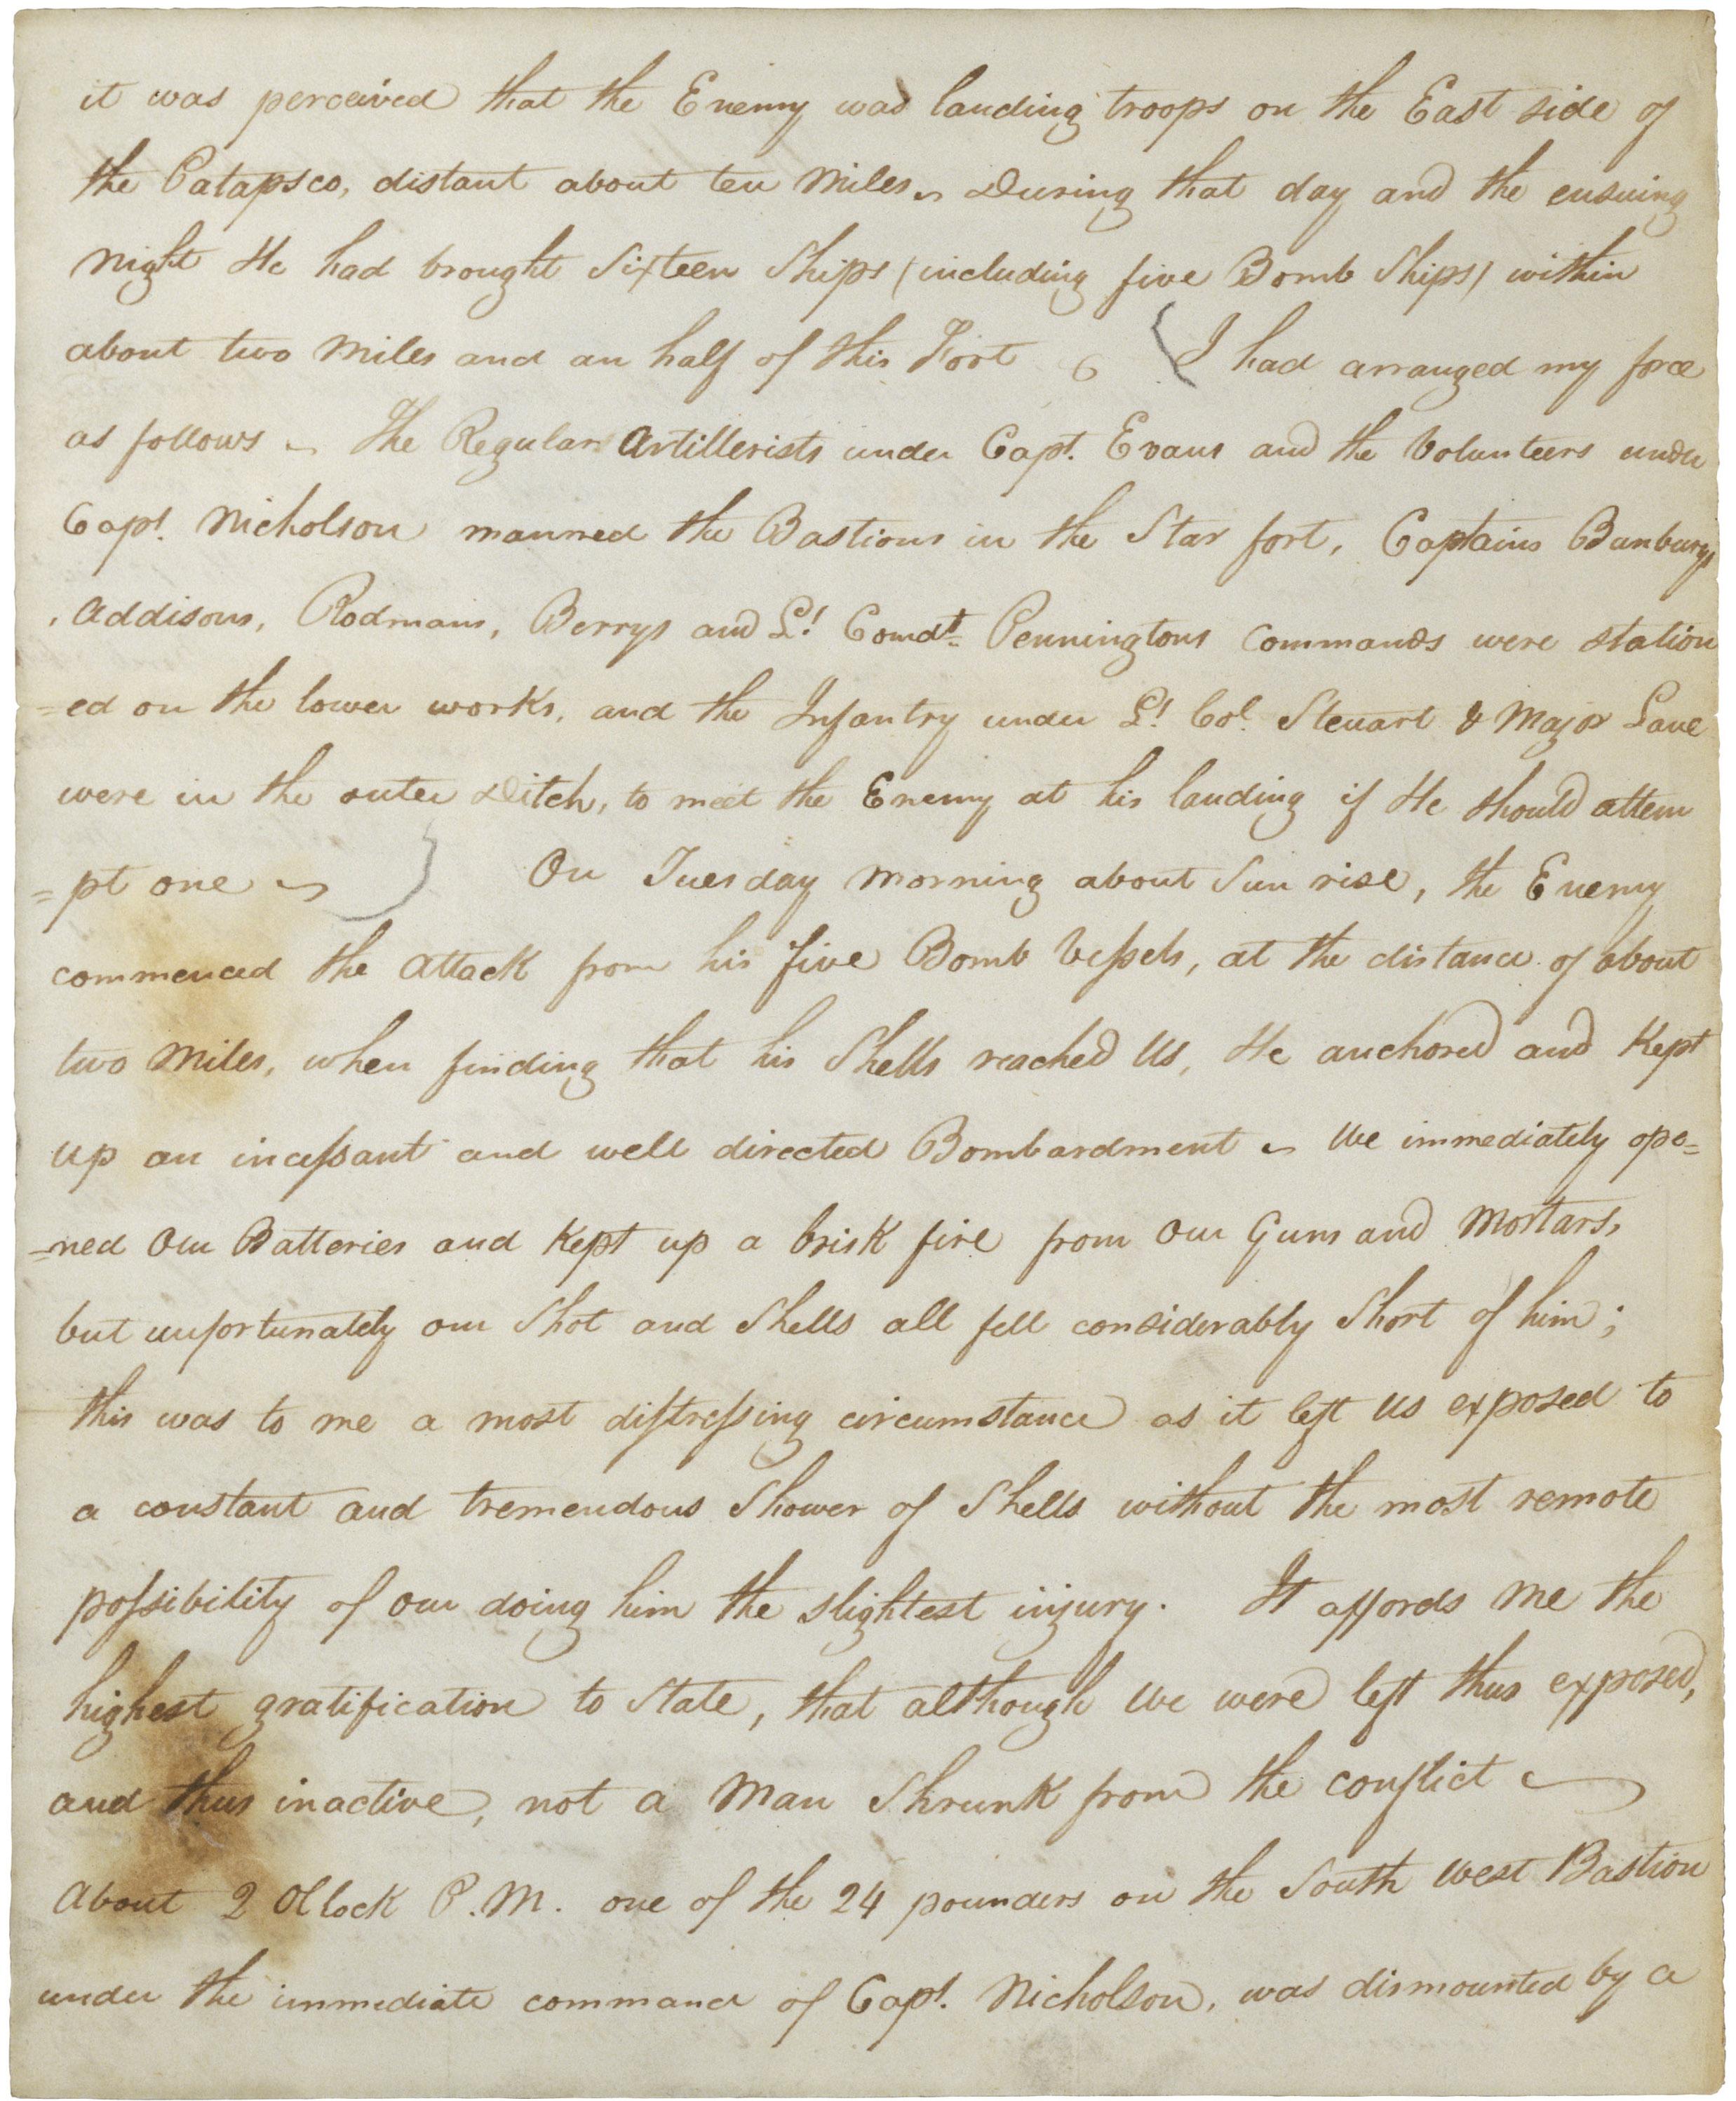 it was perceived that the Enemy was landing troops on the East side of
the Patapsco, distant about ten Miles. During that day and the ensuing
Night He had brought Sixteen Ships (including five Bomb Ships) within
about two Miles and an half of this Fort (I had arranged my force
as follows – The Regular Artillerists under Capt. Evans and the Volunteers under
Capt. Nicholson manned the Bastions in the Star fort, Captains Bunburys
, Addisons, Rodmans, Berrys and Lt. Comdt. Penningtons Commands were station
=ed on the lower works, and the Infantry under Lt. Col. Steuart & Major Lane
were in the outer Ditch, to meet the Enemy at his landing if He should attem
=pt one – ) On Tuesday Morning about Sun rise, the Enemy
commenced the Attack from his five Bomb Veſsels, at the distance of about
two Miles, when finding that his Shells reached Us, He anchored and Kept
up an inceſsant and well directed Bombardment – We immediately ope=
=ned Our Batteries and Kept up a brisk fire from Our Guns and Mortars,
but unfortunately our Shot and Shells all fell considerably Short of him;
this was to me a most diſtreſsing circumstance as it left Us exposed to
a constant and tremendous Shower of Shells without the most remote
poſsibility of our doing him the slightest injury. It affords Me the
highest gratification to State, that although We were left thus exposed,
and thus inactive, not a Man Shrunk from the conflict –
About 2 OClock P.M. one of the 24 pounders on the South West Bastion
under the immediate command of Capt. Nicholson, was dismounted by a